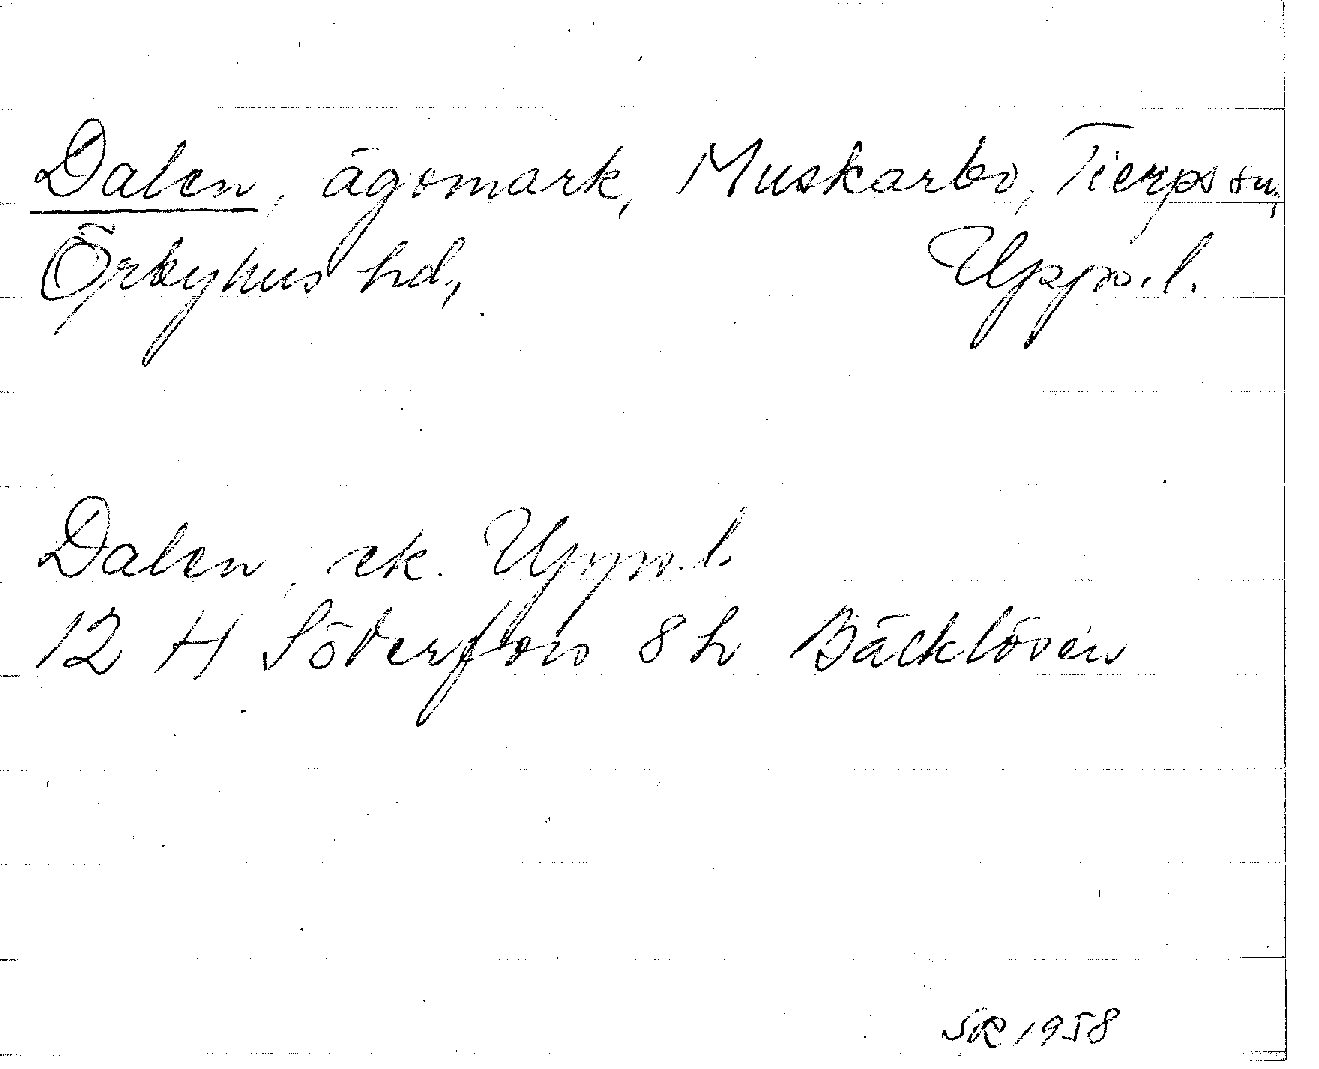 Dalen, ägomark, Muskarbo, Tierps sn,
Örbyhus hd, Upps.l.
Dalen, ek. Upps.l.
12 H Söderfors 8h Bäcklösen
SR 1958